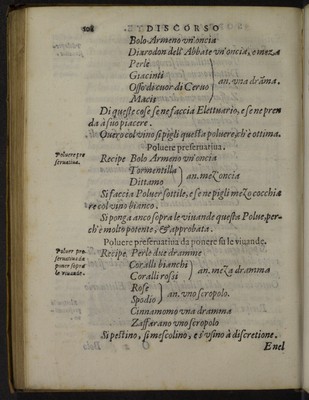 108 DISCORSO
Bolo Armeno vn'oncia
Diarodon dell'Abbate vn'oncia, e meza
Perle
Giacinti
Osso di cuor di Ceruo
Macis
an. vna drāma.
Di queste cose se ne faccia Elettuario, e se ne pren
da à suo piacere.
Ouero col vino si pigli questa poluere, ch'è ottima.
Poluere preseruatiua.
Poluere pre
seruatiua.
Recipe Bolo Armeno vn'oncia
Tormentilla
Dittamo
an. mez'oncia
Si faccia Poluer sottile, e se ne pigli mezo cocchia
re col vino bianco.
Si ponga anco sopra le viuande questa Polue, per-
ch'è molto potente, & approbata.
Poluere preseruatiua da ponere sù le viuande.
Poluer pre-
seruatiua da
poner sopra
le viuande.
Recipe, Perle due dramme
Coralli bianchi
Coralli rossi
an. meza dramma
Rose
Spodio
an. vno scropolo.
Cinnamomo vna dramma
Zaffarano vno scropolo
Si pestino, si mescolino, e s'vsino à discretione.
E nel